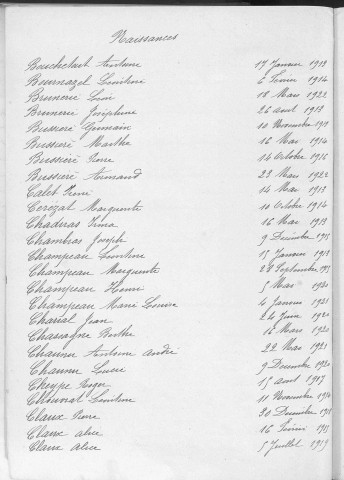 Naissances
Bouchelart Antoine 17 Janvier 1913
Bournazel 6 Février 1914
Brunerie 18 Mars 1922
Brunerie Joséphine 26 août 1913
Bussière Germain 10 Novembre
Bussière Marthe 16 Mai 1914
Bussière Pierre 14 Octobre 1916
Bussière Armand 23 Mars 1922
Calet 14 Mai 1913
Cerezat Marguerite 10 Octobre 1914
Chadiras Irma 16 Mai 1913
Chambras Joseph 9 Décembre
Champeau 15 Janvier
Champeau Marguerite 28 Septembre
Champeau Henri 5 Mars 1920
Champeau Marie Louise 4 Janvier 1921
Charial Jean 24 Juin 1920
Chassagne Berthe 16 Mars 1920
Chaumu Antoine André 22 Mai 1921
Chaumu 9 Décembre 1920
Cheype 15 août 1917
11 Novembre
Claux Pierre 20 Décembre
Claux alice 16 Février
Claux alice 5 Juillet 1919